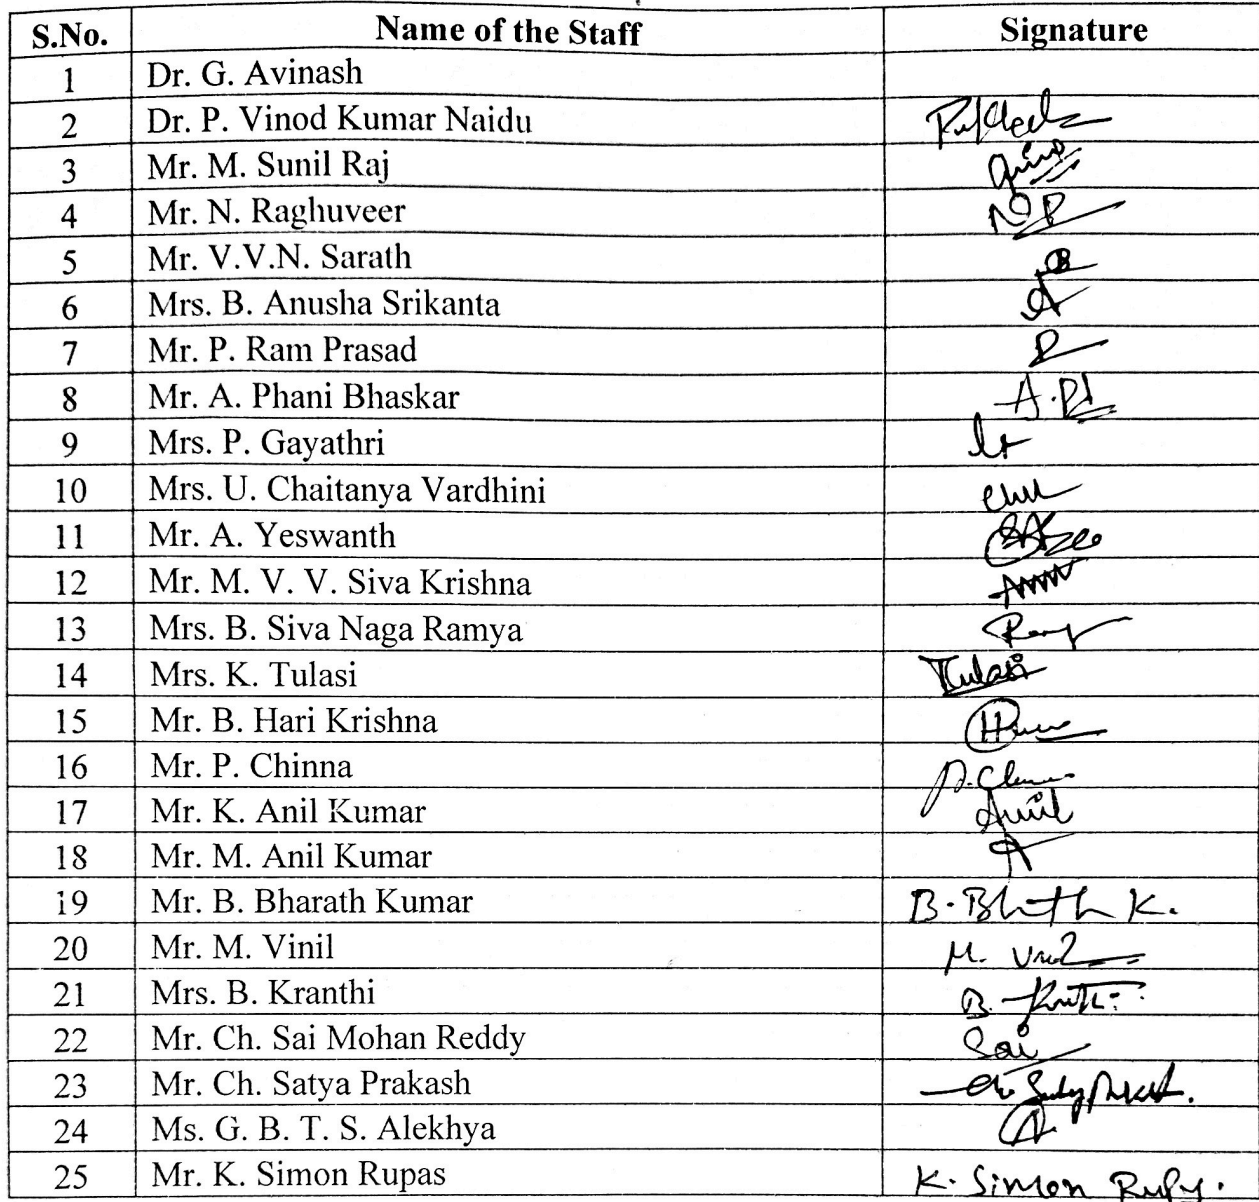 S.No. Name of the Staff Signature
1 Dr. G. Avinash
2 Dr. P. Vinod Kumar Naidu
3 Mr. M. Sunil Raj
4 Mr. N. Raghuveer
5 Mr. V.V.N. Sarath
6 Mrs. B. Anusha Srikanta
7 Mr. P. Ram Prasad
8 Mr. A. Phani Bhaskar
9 Mrs. P. Gayathri
10 Mrs. U. Chaitanya Vardhini
11 Mr. A. Yeswanth
12 Mr. M. V. V. Siva Krishna
13 Mrs. B. Siva Naga Ramya
14 Mrs. K. Tulasi Tulasi
15 Mr. B. Hari Krishna
16 Mr. P. Chinna
17 Mr. K. Anil Kumar Anil
18 Mr. M. Anil Kumar
19 Mr. B. Bharath Kumar
20 Mr. M. Vinil
21 Mrs. B. Kranthi
22 Mr. Ch. Sai Mohan Reddy Sai
23 Mr. Ch. Satya Prakash
24 Ms. G. B. T. S. Alekhya
25 Mr. K. Simon Rupas K. Simon